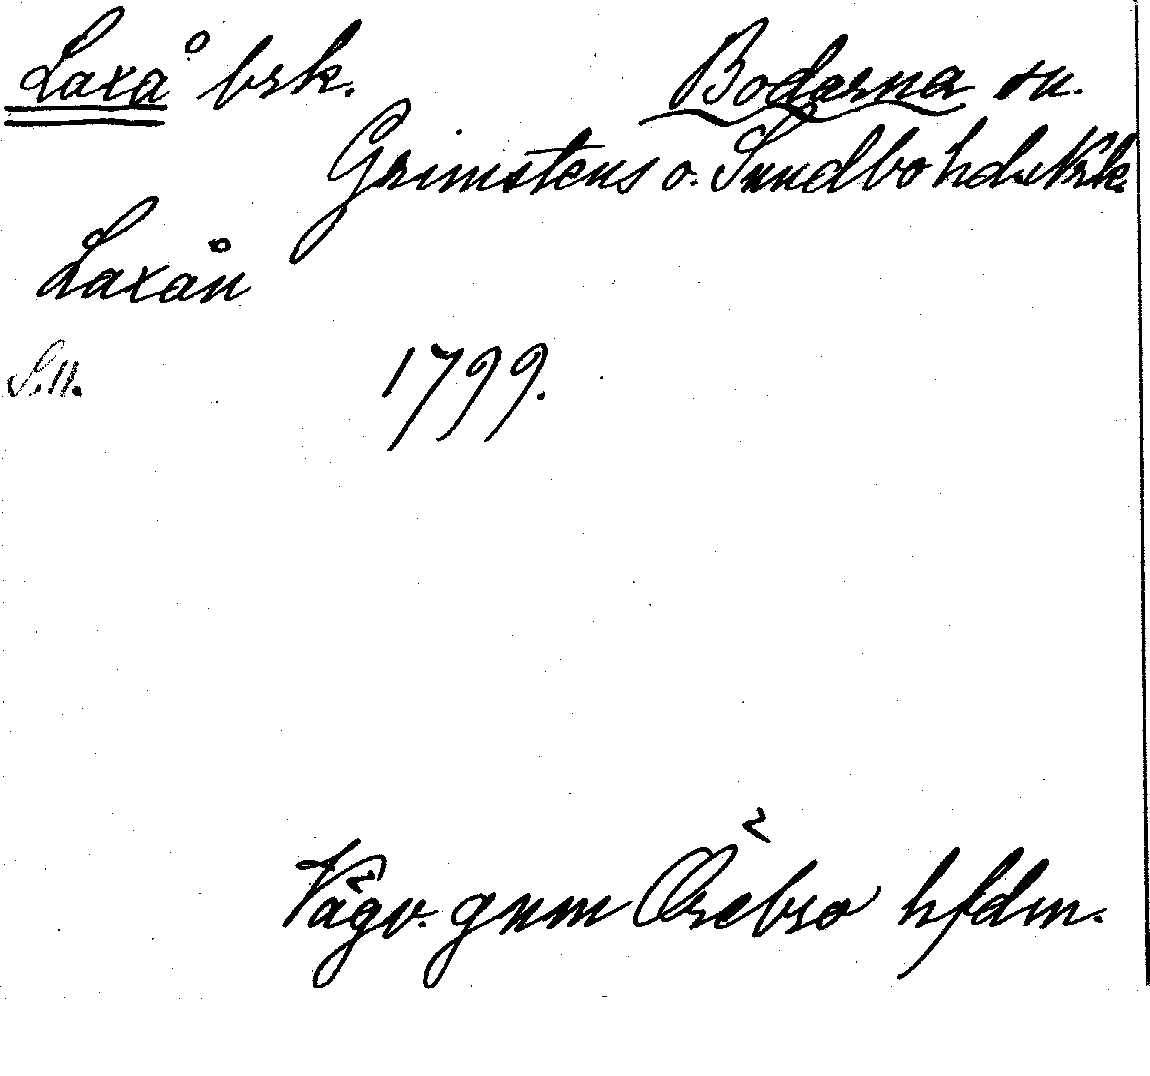 Laxå brk. Bodarna sn.
Grimstens o. Sundbo hd. Nrk.
Laxån
S. 11. 1799.
Vägv. gnm Örebro hfdm.